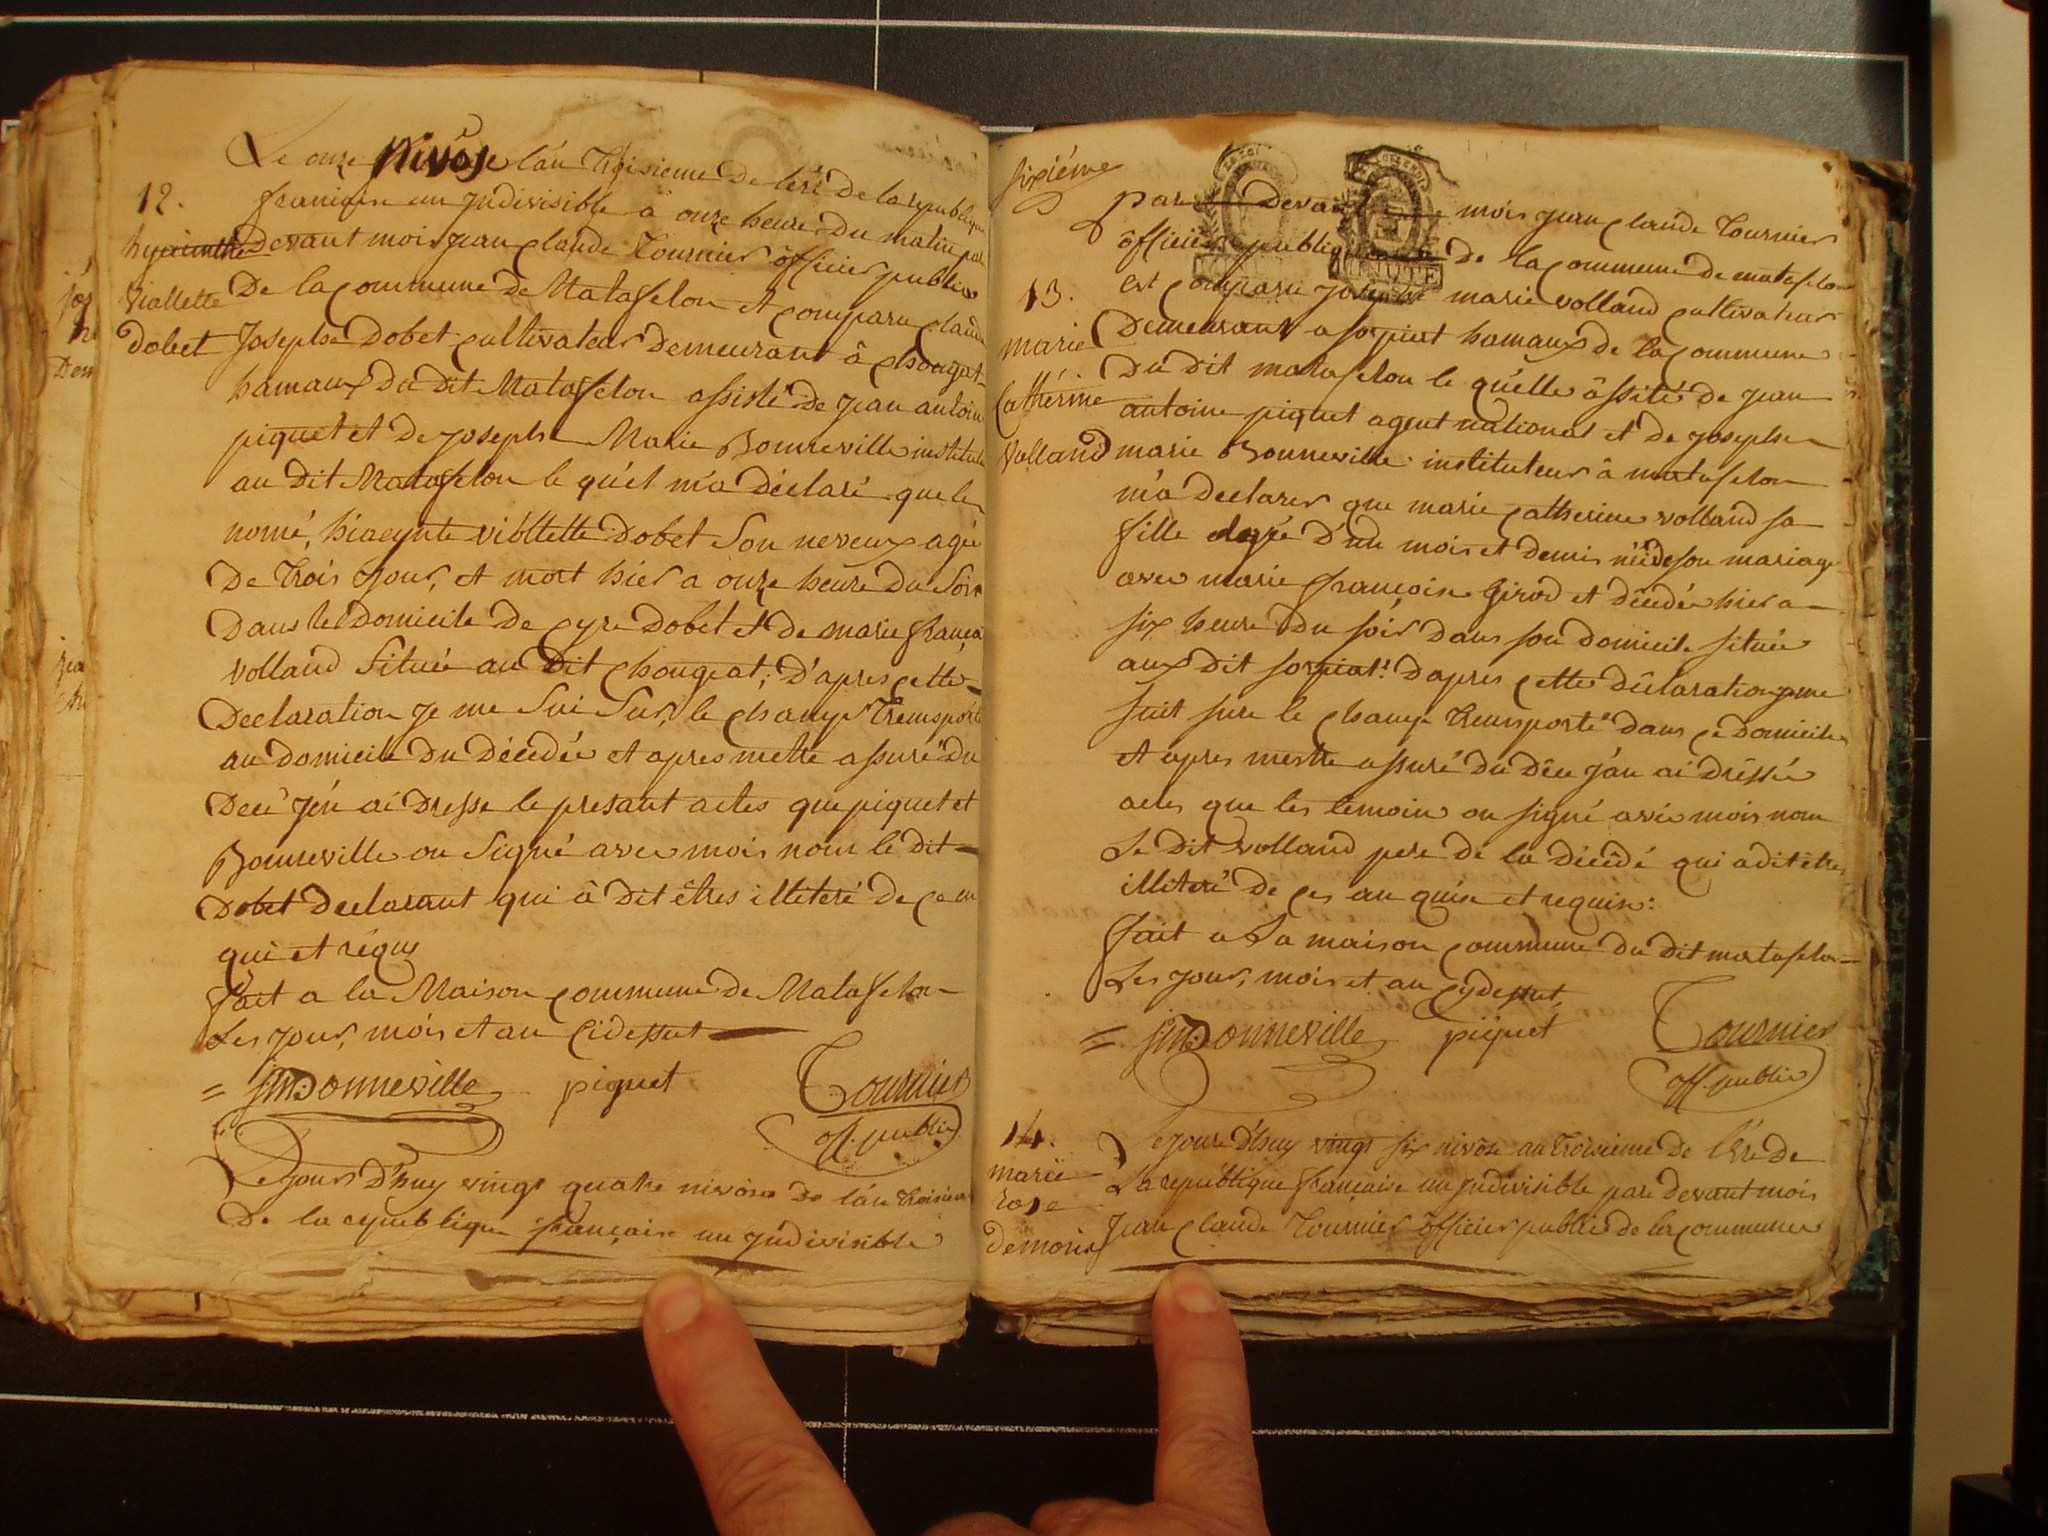 12.
hyacinthe
viallette
dobet
Le onze Nivôse l'an troisieme de l'ere de la republique
francaise un jndivisible â onze heure du matin par
devant mois jean claude Tournier ôfficier public
De la commune de Matafelon et comparu claude
Josephe Dobet cultivateur demeurant â chougat
hamaux du dit Matafelon assisté de jean antoine
piquet et de joseph Marie Bonneville institute
au dit Matafelon le quél m'a déclaré que le
nomé, hiacynte viollette Dobet son neveux agé
De trois jour, et mort hier a onze heure du soir
Dans le Domicile De cyre Dobet et de marie françoi
volland située au dit chougeat; D'apres cette
Declaration je me sui sur, le champ transporté
au domicile du décedée et apres mettre assuré du
Decé j'én ai dresse le presant actes que piquet et
Bonneville on signé avec mois nom le dit
Dobet declarant qui â dit êtres illiteré de ce en
qui et réqus
fait a la Maison commune de Matafelon
Les jour, mois et an cidessut
= jmBonneville piquet Tournier
off. public
Le jours d'huy vingt quatre nivose de l'an troisiem
De la republique française un jndivisible
sixiéme
par devant mois jean claude Tournier
ôfficier public de la commune de matafelon
13.
marie
Cathérine
Volland
est comparu josephe marie volland cultivateur
Demeurant a sorpiat hamaux de la commune
Du dit matafelon le quélle âssité de jean
antoine piquet agent national et de josephe
marie Bonneville instituteur â matafelon
m'a declarer que marie catherine volland sa
fille agée d'un mois et demis néé de son mariage
avec marie françoise Girod et décedée hier a
six heure du soir dans son domicile située
aux dit sorpiat: d'apres cette déclaration je me
suit sure le champ transporté dans ce domicile
et apres mettre assuré du déce j'an ai dréssée
actes que les temoin on signé avec mois nom
Le dit volland pere de la décédé qui a dit être
illiteré de ces an quise et requise:
fait a La maison commune du dit matafelon
Les jour, mois et an cydessut,
= jmBonneville piquet Tournier
off. public
14.
marie
rose
demoria
Le joure d'huy vingt six nivôse an troisieme de l'ére de
La republique française un jndivisible pare devant mois
Jean claude Tournier ôfficier public de la commune